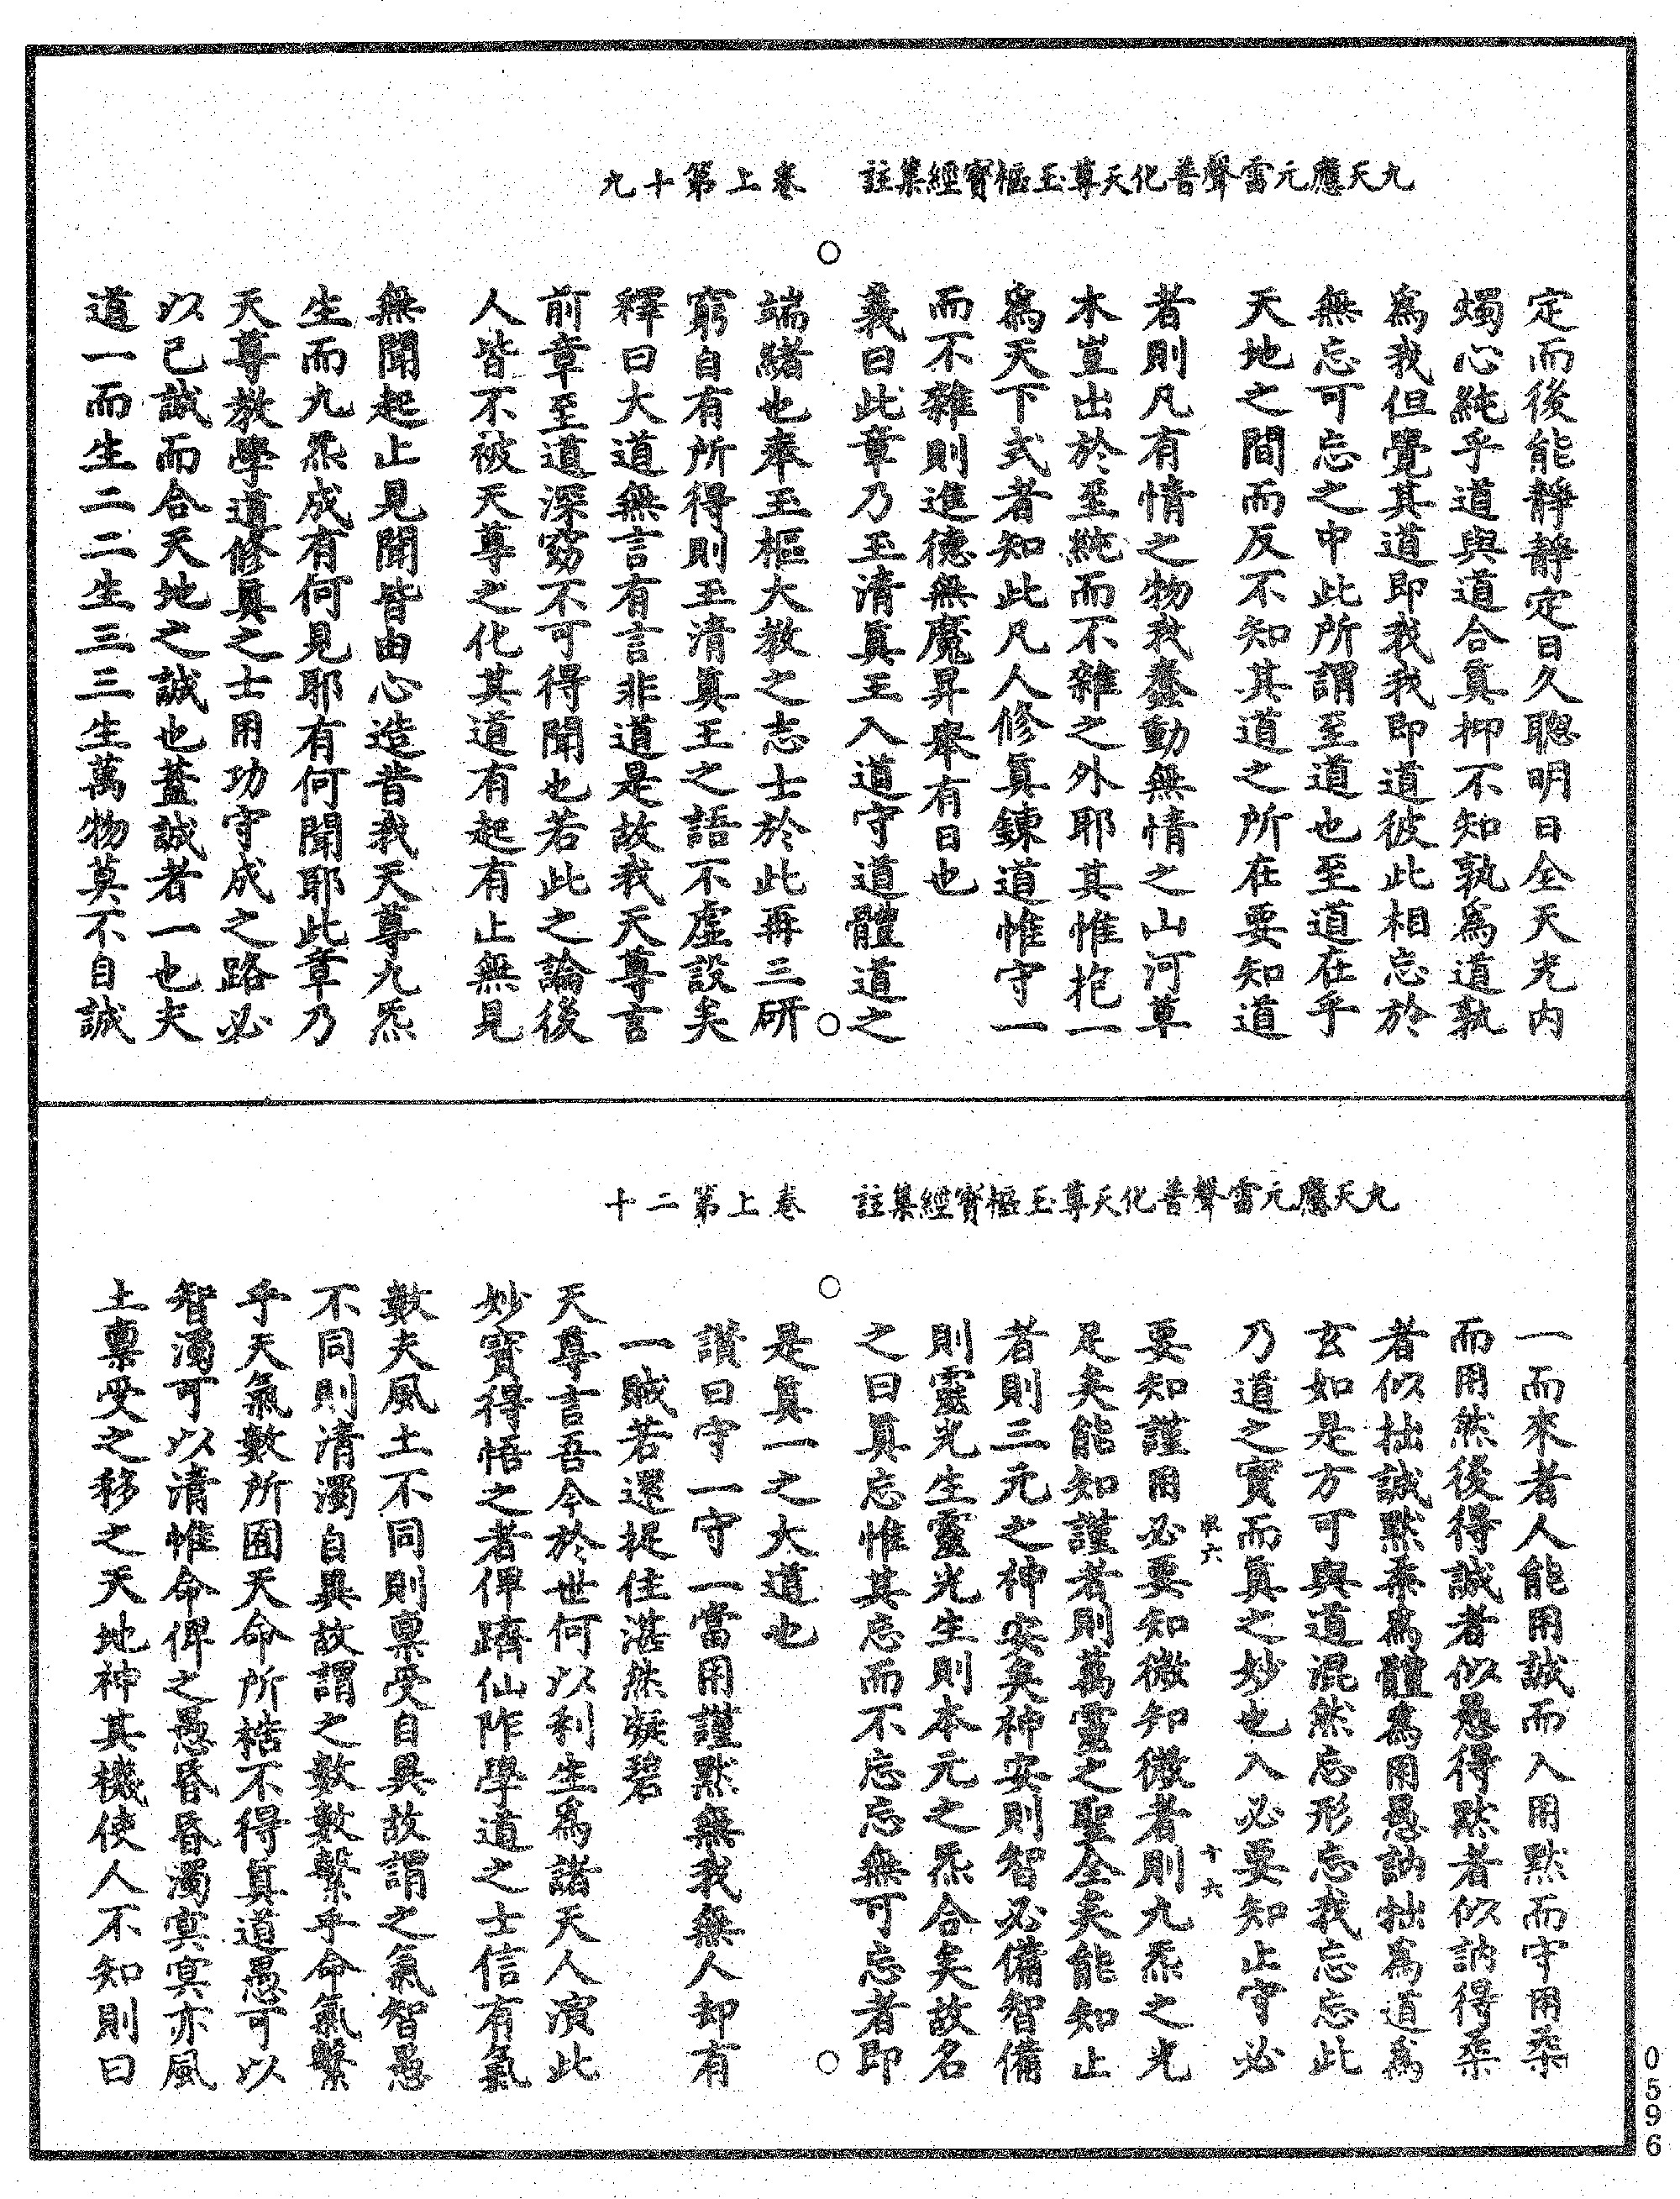 九天應元雷聲普化天尊玉樞寶經集註　卷上第十九
定而後能靜靜定日久聰明日全天光內
燭心純乎道與道合真抑不知孰為道孰
為我但覺其道即我我即道彼此相忘於
無忘可忘之中此所謂至道也至道在乎
天地之間而反不知其道之所在要知道
者則凡有情之物我蠢動無情之山河草
木豈出於至純而不雜之外耶其惟抱一
為天下式者知此凡人修真鍊道惟守一
而不雜則進德無魔昇舉有日也
義曰此章乃玉清真王入道守道體道之
端緒也奉玉樞大教之志士於此再三研
窮自有所得則玉清真王之語不虛設矣
釋曰大道無言有言非道是故我天尊言
前章至道深窈不可得聞也若此之論後
人皆不被天尊之化其道有起有止無見
無聞起止見聞皆由心造昔我天尊九炁
生而九炁成有何見耶有何聞耶此章乃
天尊教學道修真之士用功守成之路必
以己誠而合天地之誠也蓋誠者一也夫
道一而生二二生三三生萬物莫不自誠
九天應元雷聲普化天尊玉樞寶經集註　卷上第二十
一而來者人能用誠而入用默而守用柔
而用然後得誠者似愚得默者似訥得柔
者似拙誠默柔為體為用愚訥拙為道為
玄如是方可與道混然忘形忘我忘忘此
乃道之實而真之妙也入必要知止守必
張六　十六
要知謹用必要知微知微者則九炁之光
足矣能知謹者則萬靈之聖全矣能知止
者則三元之神安矣神安則智必備智備
則靈光生靈光生則本元之炁合矣故名
之曰真忘惟其忘而不忘忘無可忘者即
是真一之大道也
讚曰守一守一當用謹默無我無人却有
一賊若還捉住湛然凝碧
天尊言吾今於世何以利生為諸天人演此
妙寶得悟之者俾躋仙阼學道之士信有氣
數夫風土不同則稟受自異故謂之氣智愚
不同則清濁自異故謂之數數繫乎命氣繫
乎天氣數所囿天命所梏不得真道愚可以
智濁可以清惟命俾之愚昏昏濁冥冥亦風
土稟受之移之天地神其機使人不知則曰
0596